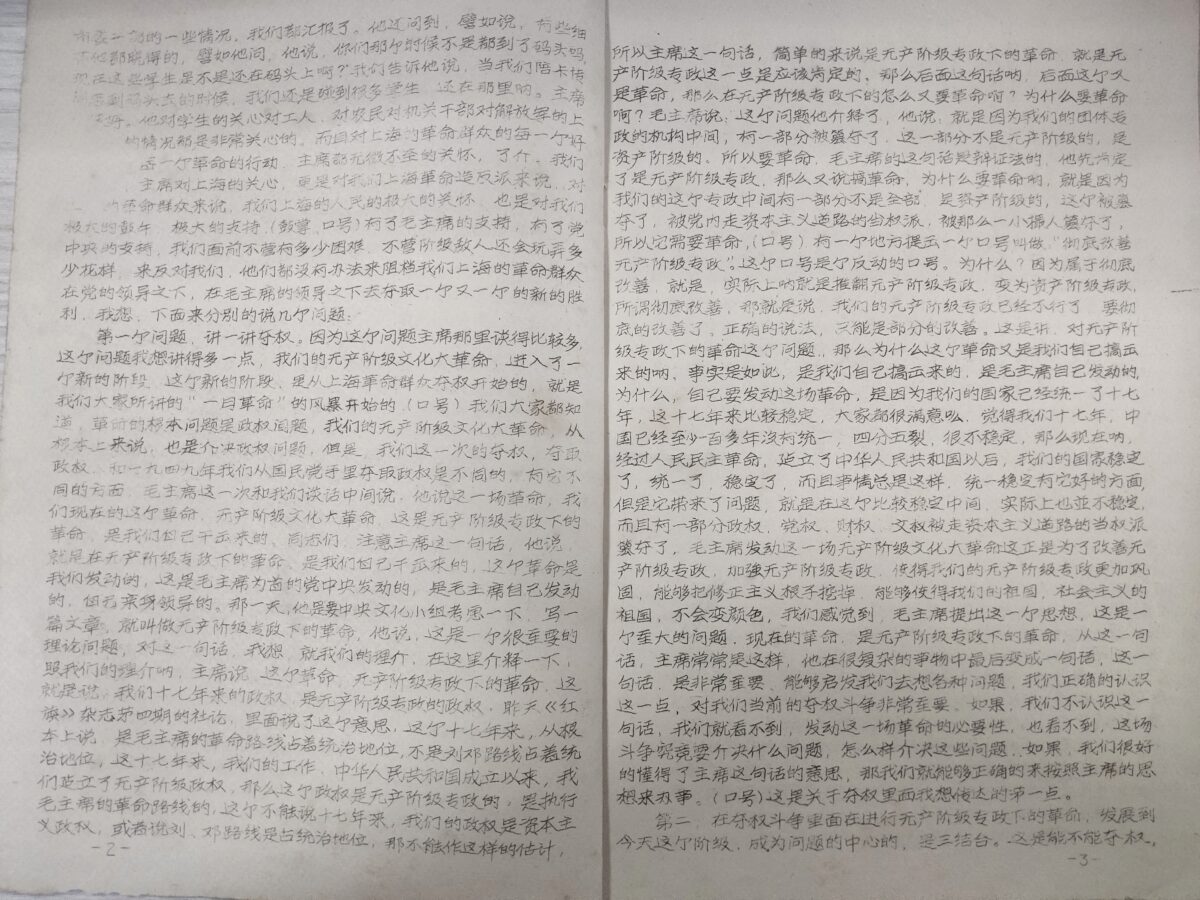 的一些情况，我们都汇报了。他还问到，譬如说，有些细
都晓得的，譬如他问，他说，你们那个时候不是都到了码头吗，
现在这些学生是不是还在码头上啊？我们告诉他说，当我们陪卡博
到码头去的时候，我们还是碰到很多学生，还在那里呐。主席
他对学生的关心对工人、对农民对机关干部对解放军的上
的情况都是非常关心的。而且对上海的革命群众的每一个好
一个革命的行动，主席都无微不至的关怀，了介。我们
主席对上海的关心，更是对我们上海革命造反派来说，对
革命群众来说，我们上海的人民的极大的关怀，也是对我们
极大的鼓午，极大的支持，(鼓掌、口号)有了毛主席的支持，有了党
中央的支持，我们面前不管有多少困难，不管阶级敌人还会玩弄多
少花样，来反对我们，他们都没有办法来阻挡我们上海的革命群众
在党的领导之下，在毛主席的领导之下去夺取一个又一个的新的胜
利，我想，下面来分别的说几个问题：
第一个问题，讲一讲夺权。因为这个问题主席那里谈得比较多，
这个问题我想讲得多一点，我们的无产阶级文化大革命，进入了一
个新的阶段，这个新的阶段，是从上海革命群众夺权开始的，就是
我们大家所讲的“一月革命”的风暴开始的，(口号)我们大家都知
道，革命的根本问题是政权问题，我们的无产阶级文化大革命，从
根本上来说，也是介决政权问题，但是，我们这一次的夺权，夺取
政权，和一九四九年我们从国民党手里夺取政权是不同的，有它不
同的方面，毛主席这一次和我们谈话中间说，他说这一场革命，我
们现在的这个革命，无产阶级文化大革命，这是无产阶级专政下的
革命，是我们自己干出来的。同志们，注意主席这一句话，他说，
就是在无产阶级专政下的革命，是我们自己干出来的，这个革命是
我们发动的，这是毛主席为首的党中央发动的，是毛主席自己发动
的，但亲身领导的。那一天，他是要中央文化小组考虑一下，写一
篇文章，就叫做无产阶级专政下的革命，他说，这是一个很重要的
理论问题，对这一句话，我想，就我们的理介，在这里介释一下，
照我们的理介呐，主席说，这个革命，无产阶级专政下的革命，这
就是说，我们十七年来的政权，是无产阶级专政的政权，昨天《红
旗》杂志第四期的社论，里面说了这个意思，这个十七年来，从根
本上说，是毛主席的革命路线占着统治地位，不是刘邓路线占着统
治地位，这十七年来，我们的工作，中华人民共和国成立以来，我
们建立了无产阶级政权，那么这个政权是无产阶级专政的，是执行
毛主席的革命路线的，这个不能说十七年来，我们的政权是资本主
义政权，或者说刘、邓路线是占统治地位，那不能作这样的估计，
-2-
所以主席这一句话，简单的来说是无产阶级专政下的革命，就是无
产阶级专政这一点是应该肯定的，那么后面这句话呐，后面这个又
是革命，那么在无产阶级专政下的怎么又要革命啊？为什么要革命
啊？毛主席说：这个问题他介释了，他说：就是因为我们的团体专
政的机构中间，有一部分被篡夺了，这一部分不是无产阶级的，是
资产阶级的。所以要革命，毛主席的这句话是辩证法的，他先肯定
了是无产阶级专政，那么又说搞革命，为什么要革命呐，就是因为
我们的这个专政中间有一部分不是全部，是资产阶级的，这个被篡
夺了，被党内走资本主义道路的当权派，被那么一小撮人篡夺了，
所以它需要革命，(口号)有一个地方提出一个口号叫做“彻底改善
无产阶级专政”。这个口号是个反动的口号。为什么？因为属于彻底
改善，就是，实际上呐就是推翻无产阶级专政，变为资产阶级专政，
所谓彻底改善，那就是说，我们的无产阶级专政已经不行了，要彻
底的改善了。正确的说法，只能是部分的改善。这是讲，对无产阶
级专政下的革命这个问题，那么为什么这个革命又是我们自己搞出
来的呐，事实是如此，是我们自己搞出来的，是毛主席自己发动的，
为什么，自己要发动这场革命，是因为我们的国家已经统一了十七
年，这十七年来比较稳定，大家都很满意么，觉得我们十七年，中
国已经至少一百多年没有统一，四分五裂，很不稳定，那么现在呐，
经过人民民主革命，建立了中华人民共和国以后，我们的国家稳定
了，统一了，稳定了，而且事情总是这样，统一稳定有它好的方面，
但是它带来了问题，就是在这个比较稳定中间，实际上也並不稳定，
而且有一部分政权、党权、财权、文权被走资本主义道路的当权派
篡夺了，毛主席发动这一场无产阶级文化大革命这正是为了改善无
产阶级专政，加强无产阶级专政，使得我们的无产阶级专政更加巩
固，能够把修正主义根子挖掉，能够使得我们的祖国，社会主义的
祖国，不会变颜色，我们感觉到，毛主席提出这一个思想，这是一
个重大的问题，现在的革命，是无产阶级专政下的革命，从这一句
话，主席常常是这样，他在很复杂的事物中最后变成一句话，这一
句话，是非常重要，能够启发我们去想各种问题，我们正确的认识
这一点，对我们当前的夺权斗争非常重要，如果，我们不认识这一
句话，我们就看不到，发动这一场革命的必要性，也看不到，这场
斗争究竟要介决什么问题，怎么样介决这些问题，如果，我们很好
的懂得了主席这句话的意思，那我们就能够正确的来按照主席的思
想来办事。(口号)这是关于夺权里面我想传达的第一点。
第二，在夺权斗争里面在进行无产阶级专政下的革命，发展到
今天这个阶级，成为问题的中心的，是三结合。这是能不能夺权，
-3-